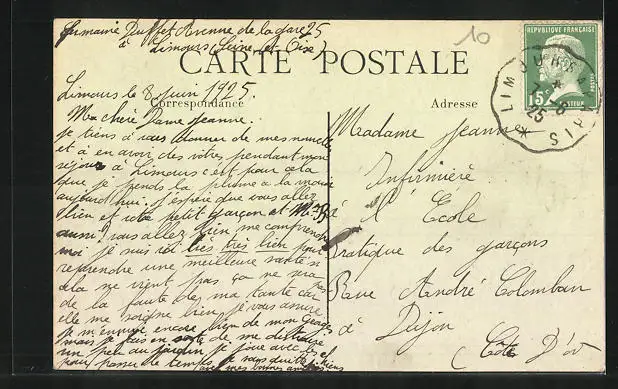 Germaine Duffet Avenue de la gare 25
à Limours (Seine et Oise)
10
CARTE POSTALE
RÉPUBLIQUE FRANÇAISE
15c
PASTEUR
POSTES
LIMOURS A PARIS
7-6
25
Correspondance
Adresse
Limours le 8 juin 1925.
Ma chère Dame Jeanne.
Je tiens à vous donner de mes nouvelles
et à en avoir des vôtres pendant mon
séjour à Limours c'est pour cela
que je prends la plume à la main
aujourd'hui. J'espère que vous allez
bien et votre petit garçon et Mr B
aussi vous allez bien me comprendre
moi je suis ici très très bien pour
reprendre une meilleure santé si
cela ne vient pas ça ne sera pas
de la faute de ma tante car
elle me soigne bien je vous assure
Je m'ennuie encore bien de mon Georges
mais je fais en sorte de me distraire
un peu au jardin je joue avec
pour passer le temps je vous quitte
avec mes bonnes amitiés
Madame Jeanne
Infirmière
à l'École
Pratique des garçons
Rue André Colomban
à Dijon
(Côte D'or